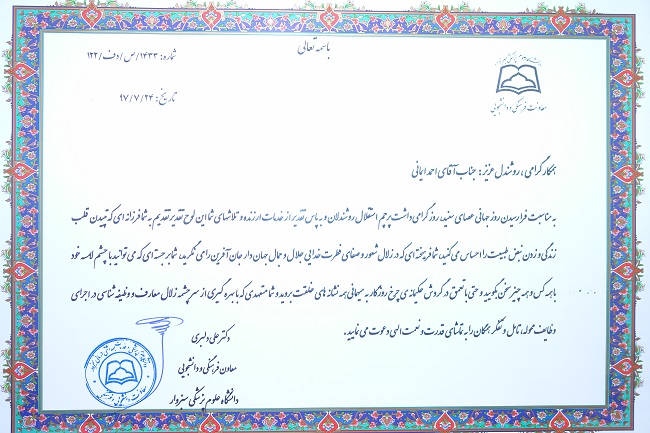 باسمه تعالی
شماره: ۱۴۳۳/ص/دف/۱۲۲
تاریخ: ۹۷/۷/۲۴
معاونت فرهنگی و دانشجویی
همکار گرامی، روشندل عزیز: جناب آقای احمد ایمانی
به مناسبت فرارسیدن روز جهانی عصای سفید، روز گرامی داشت پرچم استقلال روشندلان و به پاس تقدیر از خدمات ارزنده و تلاشهای شما این لوح تقدیر تقدیم به شما فرزانه ای که تپیدن قلب
زندگی و زدن نبض طبیعت را احساس می کنید، شما فریخته ای که در زلال شعور و صفای فطرت خدایی جلال و جمال جهان دار جان آفرین را می نگرید، شما برجسته ای که می توانید با چشم لامسه خود
با همه کس و همه چیز سخن بگویید و حتی با تعمق در گردش حکیمانه ی چرخ روزگار به سیمانی همه نشانه های خلقت بروید و شما متعهدی که با بهره گیری از سرچشمه زلال معارف و وظیفه شناسی در اجرای
وظایف محوله، تامل و تفکر همگان را به تماشای قدرت و نعمت الهی دعوت می نمایید.
دکتر علی دلبری
معاون فرهنگی و دانشجویی
دانشگاه علوم پزشکی سبزوار